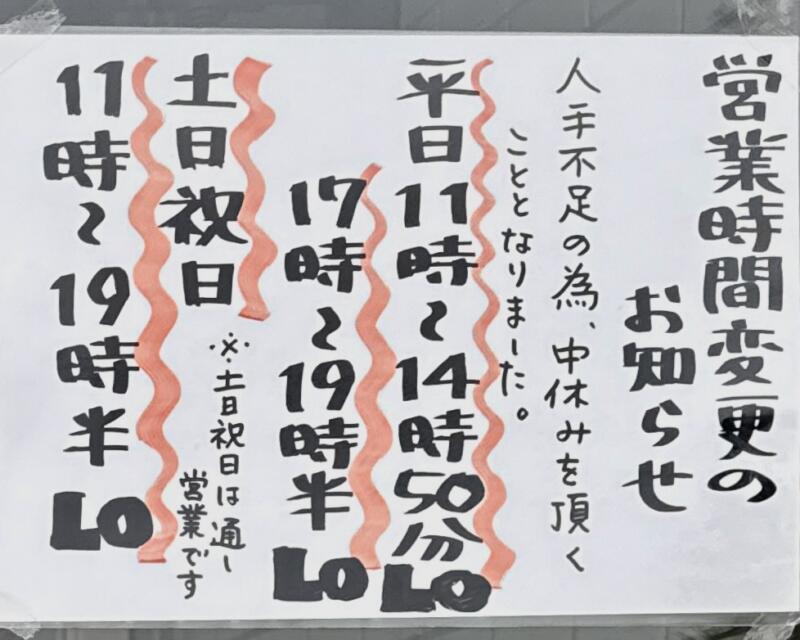 営業時間変更の
お知らせ
人手不足の為、中休みを頂く
こととなりました。
平日11時～14時50分LO
17時～19時半LO
土日祝日
※土日祝日は通し
営業です
11時～19時半LO